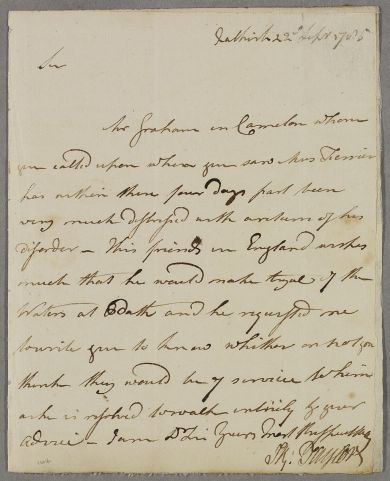 Falkirk 22d Sepr 1785
Sir
Mr Graham in Camelon whom
you called upon when you saw Mrs Ferrier
has within these four days past been
very much distressed with a return of his
disorder – His friends in England wishes
much that he would make tryal of the
Waters at Bath and he requested me
to write you to know whither or not you
think they would be of service to him
as he is resolved to walk intirely by your
advice – I am Dr Sir Yours most Respectfully